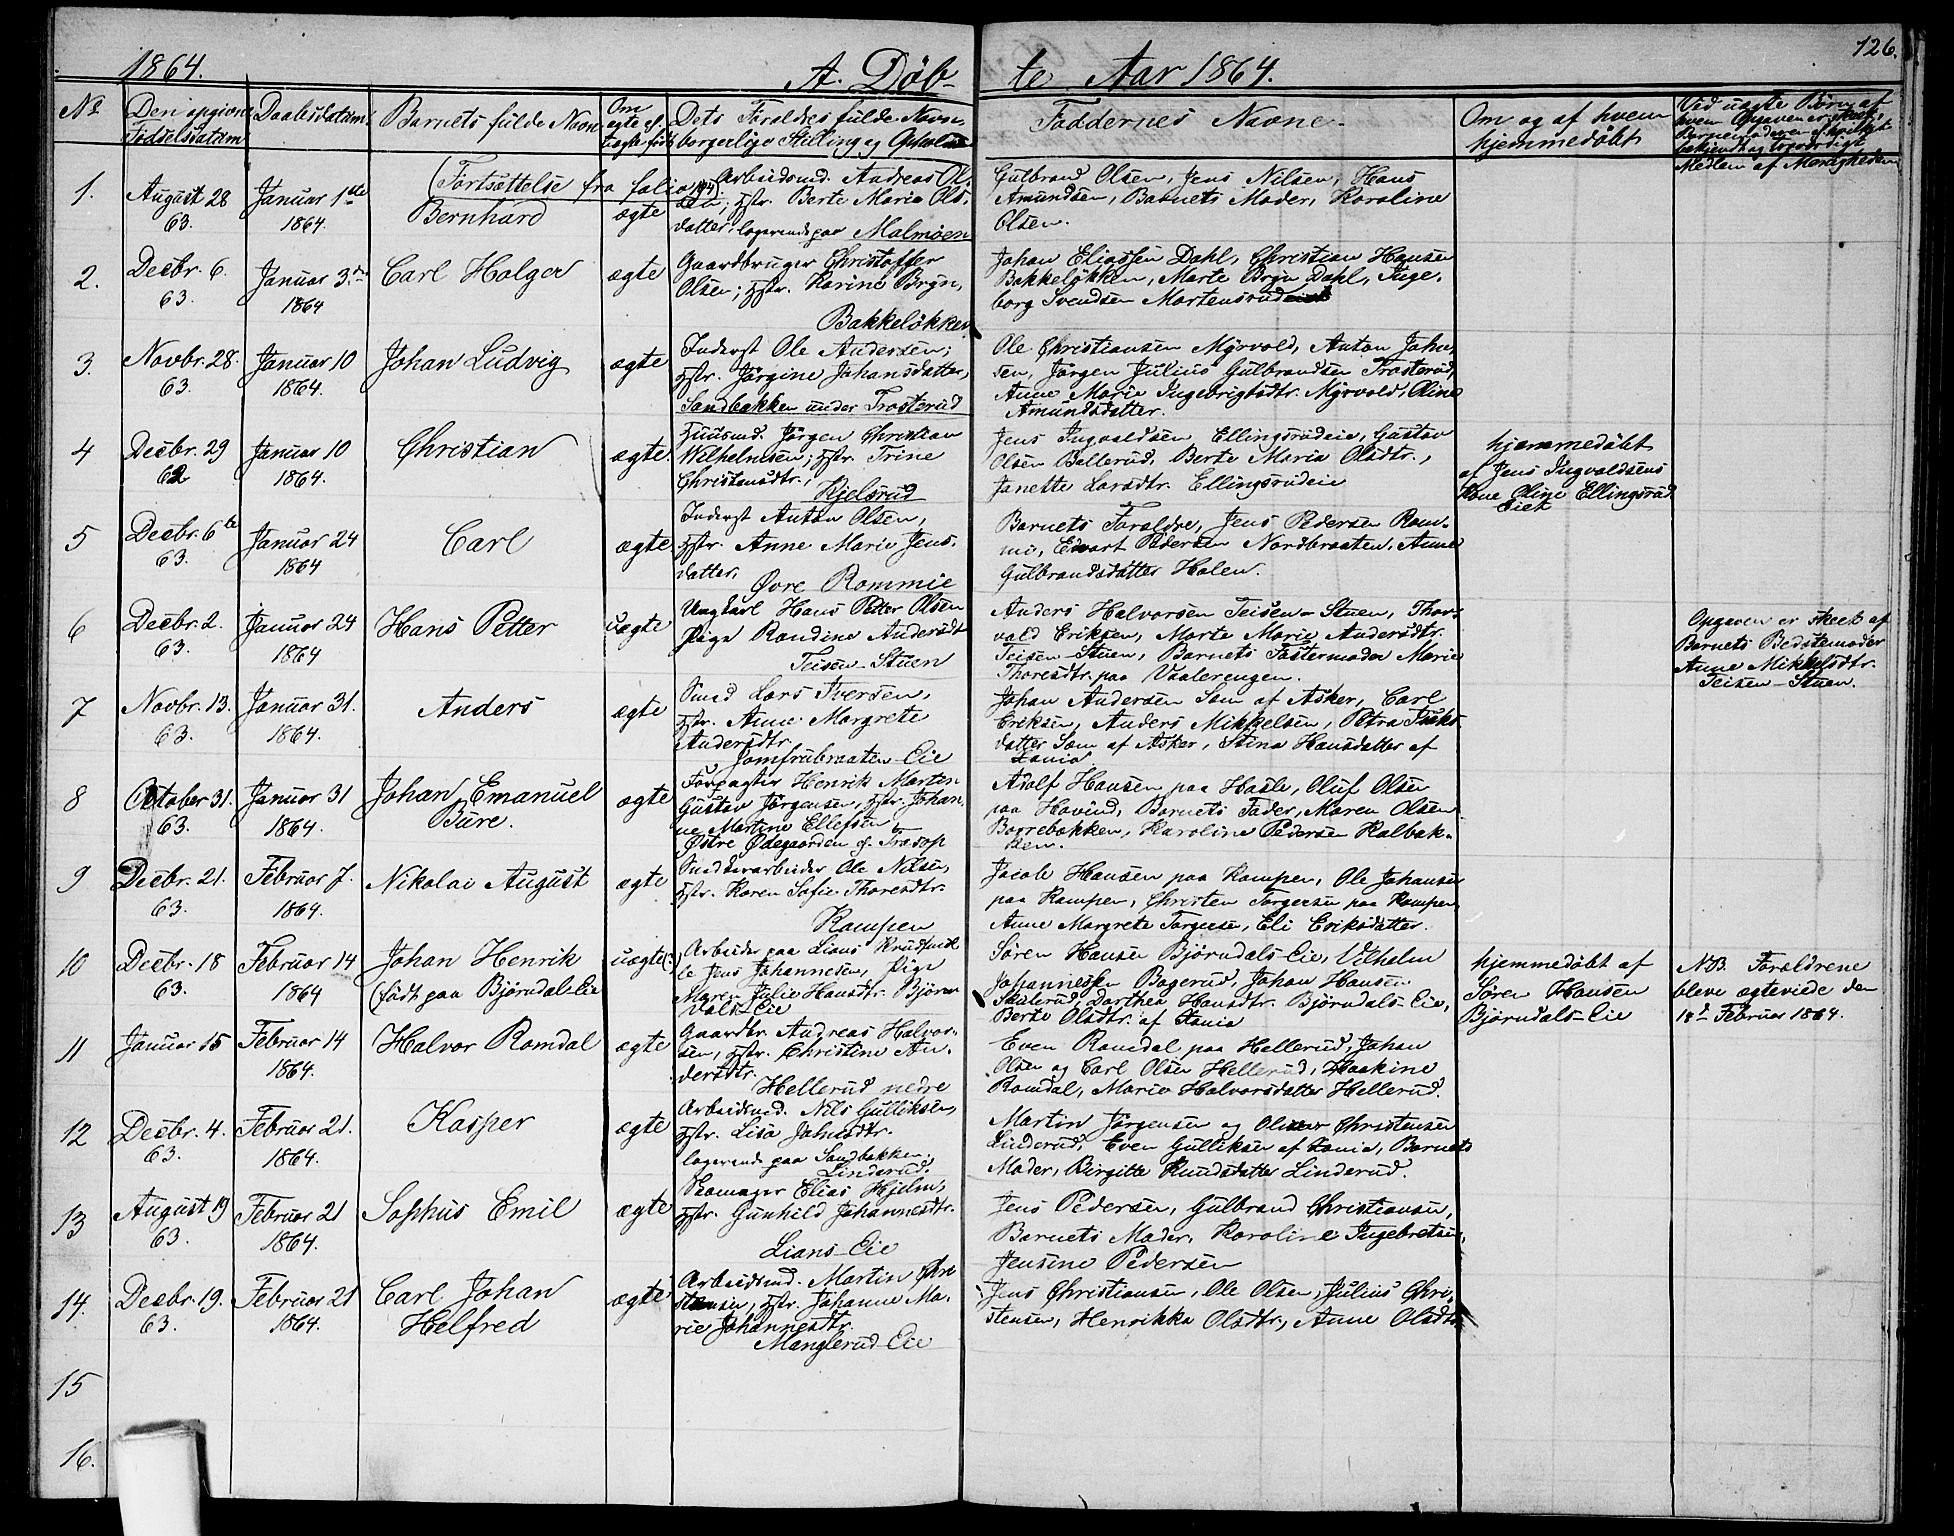 126.
1864. A. Döb- te Aar 1864.
No Den opgivne Fødselsdatum Daabsdatum Barnets fulde Navn Om ægte el. uægte født Dets Forældres fulde Navn, borgerlige Stilling og Opholds Faddernes Navne. Om og af hvem hjemmedöbt Ved uægte Börn af hvem Opgaven er skeet, Barnemoderen el. hvilket bekjendt og troværdigt Medlem af Menigheden
(Fortsættelse fra folio 104)
1. August 28 63. Januar 1ste 1864. Bernhard ægte
Arbeidsmd. Andreas Ol-
sen; Hstr. Berte Maria Ols-
datter, logerende paa Malmöen
Gulbrand Olsen, Jens Nilsen, Hans
Amundsen, Barnets Moder, Karoline
Olsen.
2. Decbr. 6. 63. Januar 3die 1864 Carl Holger ægte
Gaardbruger Christoffer
Olsen; Hstr. Karine Bryn,
Bakkelökken
Johan Eliassen Dahl, Christian Hansen
Bakkelökken, Marte Bryn Dahl, Inge-
borg Svendsen Mortensrud
3. Novbr. 28. 63. Januar 10 1864. Johan Ludvig ægte
Inderst Ole Andersen;
Hstr. Jörgine Johansdatter,
Sandbakken under Trosterud
Ole Christiansen Myrvold, Anton John-
sen, Jörgen Julius Gulbrandsen Trosterud,
Anne Marie Ingebrigtsdtr. Myrvold, Oline
Amundsdatter.
4 Decbr. 29 62 Januar 10 1864. Christian ægte
Huusmd. Jörgen Christian
Wilhelmsen; Hstr. Trine
Christensdtr.,
Kjelsrud
Jens Ingvaldsen Ellingsrudeie, Gustav
Olsen Ballerud, Berte Maria Olsdtr.,
Janette Larsdtr. Ellingsrudeie
hjemmedöbt
af Jens Ingvaldsens
Kone Oline Ellingsrud
Eiet
5 Decbr. 6te 63. Januar 24 1864 Carl ægte
Inderst Anton Olsen,
Hstr. Anne Marie Jens-
datter,
Övre Rommie
Barnets Forældre, Jens Pedersen Rom-
mi, Edvart Pedersen Nordbraaten, Anne
Gulbrandsdatter Holen.
6 Decbr. 2. 63. Januar 24 1864 Hans Petter uægte
Ungkarl Hans Petter Olsen
Pige Randine Andersdt
Teisen-Stuen
Anders Halvorsen Teisen-Stuen, Thor-
vald Eriksen, Marte Marie Andersdtr.
Teisen-Stuen, Barnets Fastermoder Marie
Thoresdtr. paa Vaalerengen.
Opgaven er skeet af
Barnets Bedstemoder
Anne Mikkelsdtr.
Teisen-Stuen.
7 Novbr. 13. 63. Januar 31. 1864. Anders ægte
Smed Lars Iversen,
Hstr. Anne Margrete
Andersdtr.
Jomfrubraaten-Eie
Johan Andersen Sem af Asker, Carl
Eriksen, Anders Mikkelsen, Petra
datter Sem af Asker, Stina Hansdatter af
Xania
8 October 31. 63. Januar 31 1864. Johan Emanuel Bure. ægte
Forpagter Henrik Morten
Gustav Jörgensen, Hstr. Johan-
ne Martine Ellefsen
Östre Ödegaarden af Træsop
Adolf Hansen paa Hasle, Oluf Olsen
paa Hovind, Barnets Fader, Maren Olsen
Borrebakken, Karoline Pedersen Kalbak-
ken.
9 Decbr. 21. 63. Februar 7. 1864. Nikolai August ægte
Snedkerarbeider Ole Nilsen,
Hstr. Karen Sofie Thoresdtr.
Kampen
Jacob Hansen paa Kampen, Ole Johansen
paa Kampen, Christen Torgersen paa Kampen
Anne Margrete Torgersen, Eli Eriksdatter.
10 Decbr. 18 63. Februar 14 1864 Johan Henrik (födt paa Björndal-Eie uægte(?)
Arbeider paa Lians
Jens Johannesen, Pige
Maren Julie Hansdtr. Björn-
dals-Eie
Sören Hansen Björndals-Eie, Vilhelm
Johannesen Bagerud, Johan Hansen
Dorthea Hansdtr. Björndals-Eie,
Berte Olsdtr. af Xania
hjemmedöbt af
Sören Hansen
Björndals-Eie
NB. Forældrene
bleve ægteviede den
18d Februar 1864.
11 Januar 15 Februar 14 1864. Halvor Romdal ægte
Gaardbr. Andreas Halvor-
sen, Hstr. Christine An-
dersdtr.
Hellerud nedre
Even Romdal paa Hellerud, Johan
Olsen og Carl Olsen Hellerud, Haakine
Romdal, Marie Halvorsdatter Hellerud.
12 Decbr. 4. 63. Februar 21. 1864. Kasper ægte
Arbeidsmd. Nils Gulliksen,
Hstr. Lisa Johnsdtr.
logerende paa Sandbakken,
Linderud.
Martin Jörgensen og Christensen
Linderud, Even Gulliksen af Xania, Barnets
Moder, Birgitte Knudsdatter Linderud.
13 August 19 63. Februar 21 1864. Sophus Emil ægte
Skomager Elias Hjelm,
Hstr. Gunhild Johannesdtr.
Lians-Eie
Jens Pedersen, Gulbrand Christiansen,
Barnets Moder, Karoline Ingebretsen,
Jensine Pedersen
14. Decbr. 19. 63. Februar 21 1864. Carl Johan Helfred ægte
Arbeidsmd. Martin Chri
stensen, Hstr. Johanne Ma-
rie Johannesdtr.
Manglerud-Eie
Jens Christiansen, Ole Olsen, Julius Chri-
stensen, Henrikka Olsdtr., Anne Olsdtr
15
16.